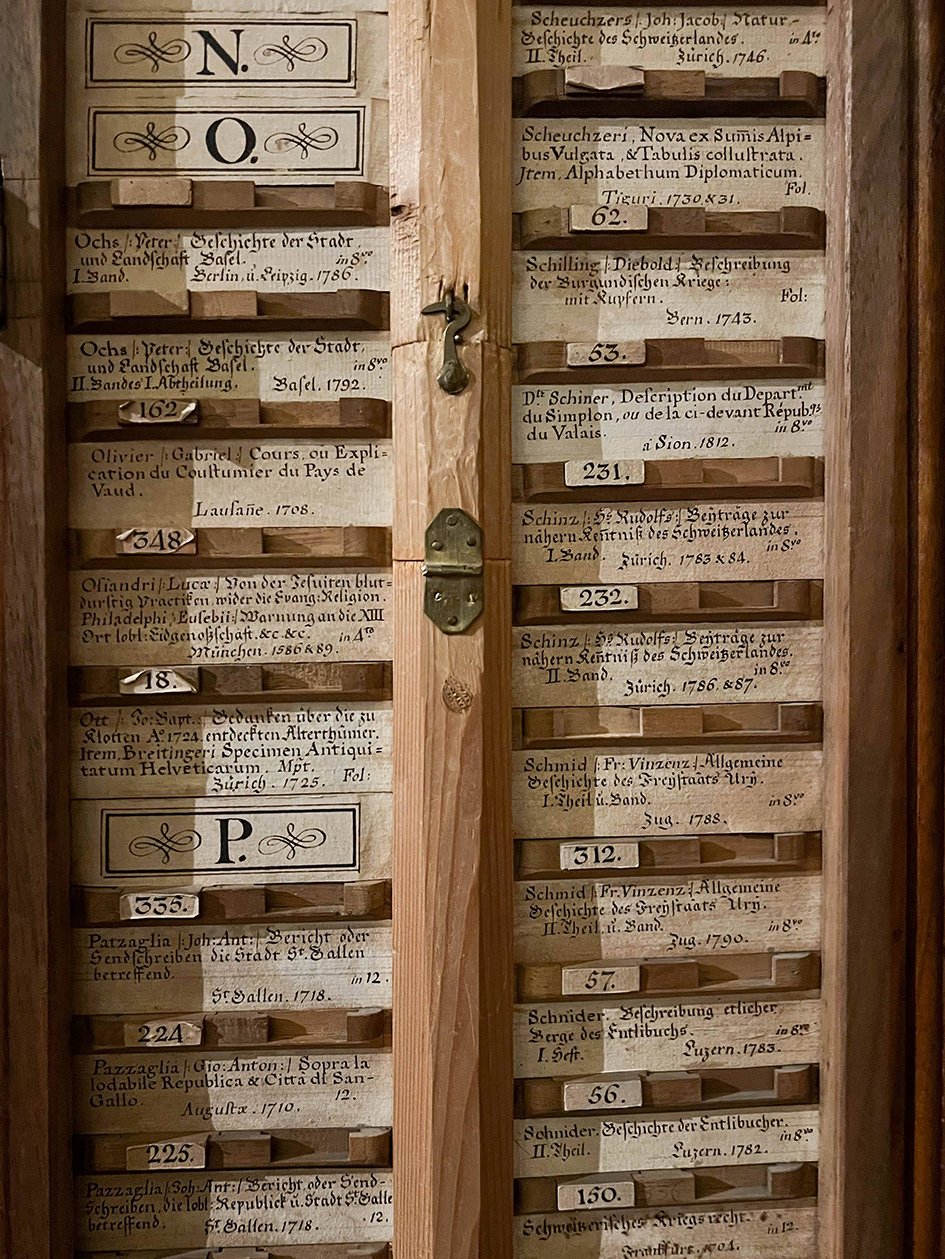 N.
O.
Ochs /: Peter :/ Geschichte der Stadt,
und Landschaft Basel. in 8.vo
I. Band. Berlin, u. Leipzig. 1786.
Ochs /: Peter :/ Geschichte der Stadt,
und Landschaft Basel. in 8.vo
II. Bandes I. Abtheilung. Basel. 1792.
162
Olivier /: Gabriel :/ Cours, ou Expli-
cation du Coustumier du Pays de
Vaud.
Lausañe. 1708.
348
Osiandri /: Lucæ :/ Von der Jesuiten blut-
durstig Practiken, wider die Evang: Religion.
Philadelphi, Eusebii :/ Warnung an die XIII
Ort lobl: Eidgenoßschaft, &c. &c. in 4.to
München. 1586 & 89.
18.
Ott /: Jo: Bapt.: Gedanken über die zu
Klotten Aº. 1724. entdeckten Alterthümer.
Item, Breitingeri Specimen Antiqui-
tatum Helveticarum. Mpt.
Zürich. 1725. Fol:
P.
335.
Patzaglia /: Joh: Ant: / Bericht oder
Sendschreiben die Stadt St. Gallen
betreffend. in 12.
St. Gallen. 1718.
224
Pazzaglia /: Gio: Anton: / Sopra la
lodabile Republica & Città di San-
Gallo. 12.
Augustæ. 1710.
225.
Pazzaglia /: Joh: Ant: / Bericht, oder Send-
Schreiben, die lobl: Republick u. Stadt St. Galle
betreffend. St. Gallen. 1718. 12.
Scheuchzers /: Joh: Jacob :/ Natur-
Geschichte des Schweitzerlandes. in 4.to
II. Theil. Zürich. 1746.
Scheuchzeri, Nova ex Sum̃is Alpi=
bus Vulgata, & Tabulis collustrata.
Item, Alphabethum Diplomaticum.
Tiguri. 1730. & 31. Fol.
62.
Schilling /: Diebold :/ Beschreibung
der Burgundischen Kriege:
mit Kupfern. Fol:
Bern. 1743.
53.
Schiner, Description du Depart.mt
du Simplon, ou de la ci-devant Républ.
du Valais. in 8.vo
à Sion. 1812.
231.
Schinz /: Hs. Rudolfs :/ Beÿträge zur
nähern Keñtniß des Schweitzerlandes.
I. Band. Zürich. 1783 & 84. in 8.vo
232.
Schinz /: Hs. Rudolfs :/ Beÿträge zur
nähern Keñtniß des Schweitzerlandes.
II. Band. in 8.vo
Zürich. 1786. & 87.
Schmid /: Fr: Vinzenz :/ Allgemeine
Geschichte des Freÿstaats Urÿ.
I. Theil u. Band. in 8.vo
Zug. 1788.
312.
Schmid /: Fr. Vinzenz :/ Allgemeine
Geschichte des Freÿstaats Urÿ.
II. Theil. u. Band. in 8.vo
Zug. 1790.
57.
Schnider. Beschreibung etlicher
Berge des Entlibuchs. in 8.vo
I. Heft. Luzern. 1783.
56.
Schnider. Geschichte der Entlibucher.
II. Theil. Luzern. 1782. in 8.vo
150.
Schweitzerisches Kriegsrecht. in 12.
Frankfurt. 1704.